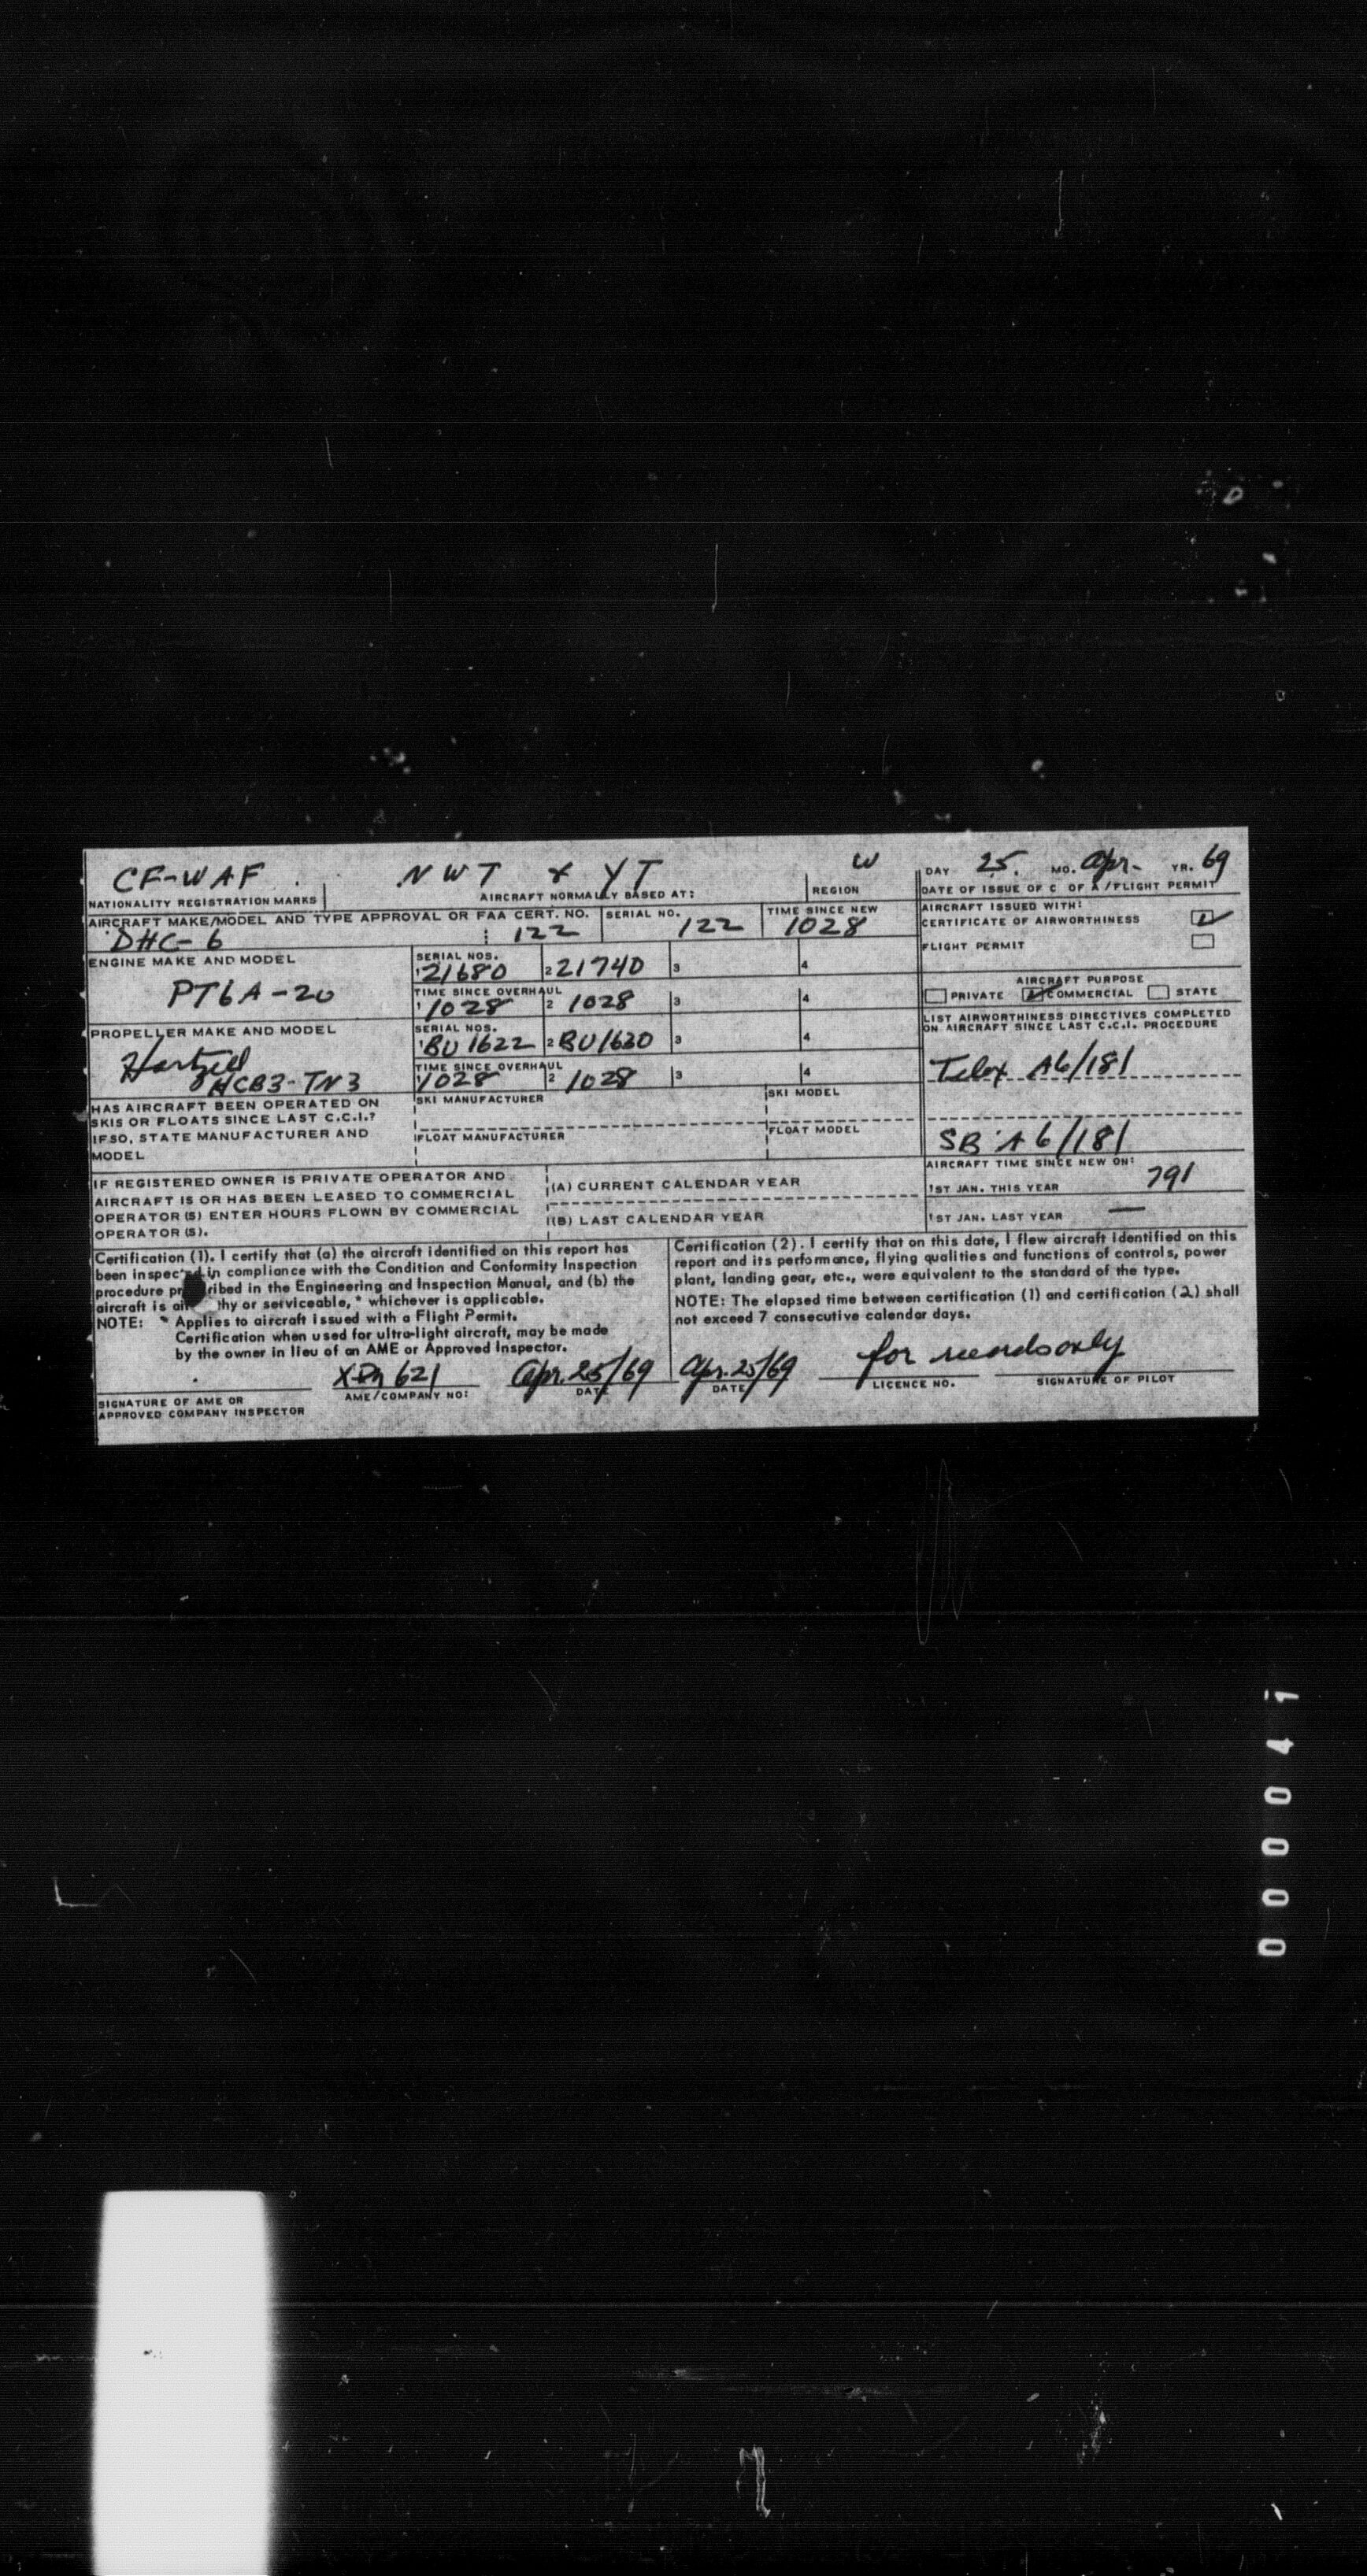 CF-WAF NWT & YT W DAY 25. MO. Apr- YR. 69
NATIONALITY REGISTRATION MARKS AIRCRAFT NORMALLY BASED AT: REGION DATE OF ISSUE OF C OF A/FLIGHT PERMIT
AIRCRAFT MAKE/MODEL AND TYPE APPROVAL OR FAA CERT. NO. SERIAL NO. TIME SINCE NEW
DHC-6 122 122 1028
AIRCRAFT ISSUED WITH:
CERTIFICATE OF AIRWORTHINESS
FLIGHT PERMIT
ENGINE MAKE AND MODEL
PT6A-20
SERIAL NOS.
1 21680 2 21740 3 4
TIME SINCE OVERHAUL
1 1028 2 1028 3 4
AIRCRAFT PURPOSE
PRIVATE COMMERCIAL STATE
PROPELLER MAKE AND MODEL
Hartzell
HCB3-TN3
SERIAL NOS.
1 BU 1622 2 BU1630 3 4
TIME SINCE OVERHAUL
1028 2 1028 3 4
LIST AIRWORTHINESS DIRECTIVES COMPLETED
ON AIRCRAFT SINCE LAST C.C.I. PROCEDURE
Telex A6/181
SB A6/181
HAS AIRCRAFT BEEN OPERATED ON
SKIS OR FLOATS SINCE LAST C.C.I.?
IF SO, STATE MANUFACTURER AND
MODEL
SKI MANUFACTURER SKI MODEL
FLOAT MANUFACTURER FLOAT MODEL
AIRCRAFT TIME SINCE NEW ON:
1ST JAN. THIS YEAR 791
1ST JAN. LAST YEAR —
IF REGISTERED OWNER IS PRIVATE OPERATOR AND
AIRCRAFT IS OR HAS BEEN LEASED TO COMMERCIAL
OPERATOR (S) ENTER HOURS FLOWN BY COMMERCIAL
OPERATOR (S).
(A) CURRENT CALENDAR YEAR
(B) LAST CALENDAR YEAR
Certification (1). I certify that (a) the aircraft identified on this report has
been inspected in compliance with the Condition and Conformity Inspection
procedure pr ribed in the Engineering and Inspection Manual, and (b) the
aircraft is ai thy or serviceable, * whichever is applicable.
NOTE: * Applies to aircraft issued with a Flight Permit.
Certification when used for ultra-light aircraft, may be made
by the owner in lieu of an AME or Approved Inspector.
Certification (2). I certify that on this date, I flew aircraft identified on this
report and its performance, flying qualities and functions of controls, power
plant, landing gear, etc., were equivalent to the standard of the type.
NOTE: The elapsed time between certification (1) and certification (2) shall
not exceed 7 consecutive calendar days.
621 Apr. 25/69 Apr. 25/69 for records only
SIGNATURE OF AME OR
APPROVED COMPANY INSPECTOR
AME/COMPANY NO: DATE DATE LICENCE NO. SIGNATURE OF PILOT
000041